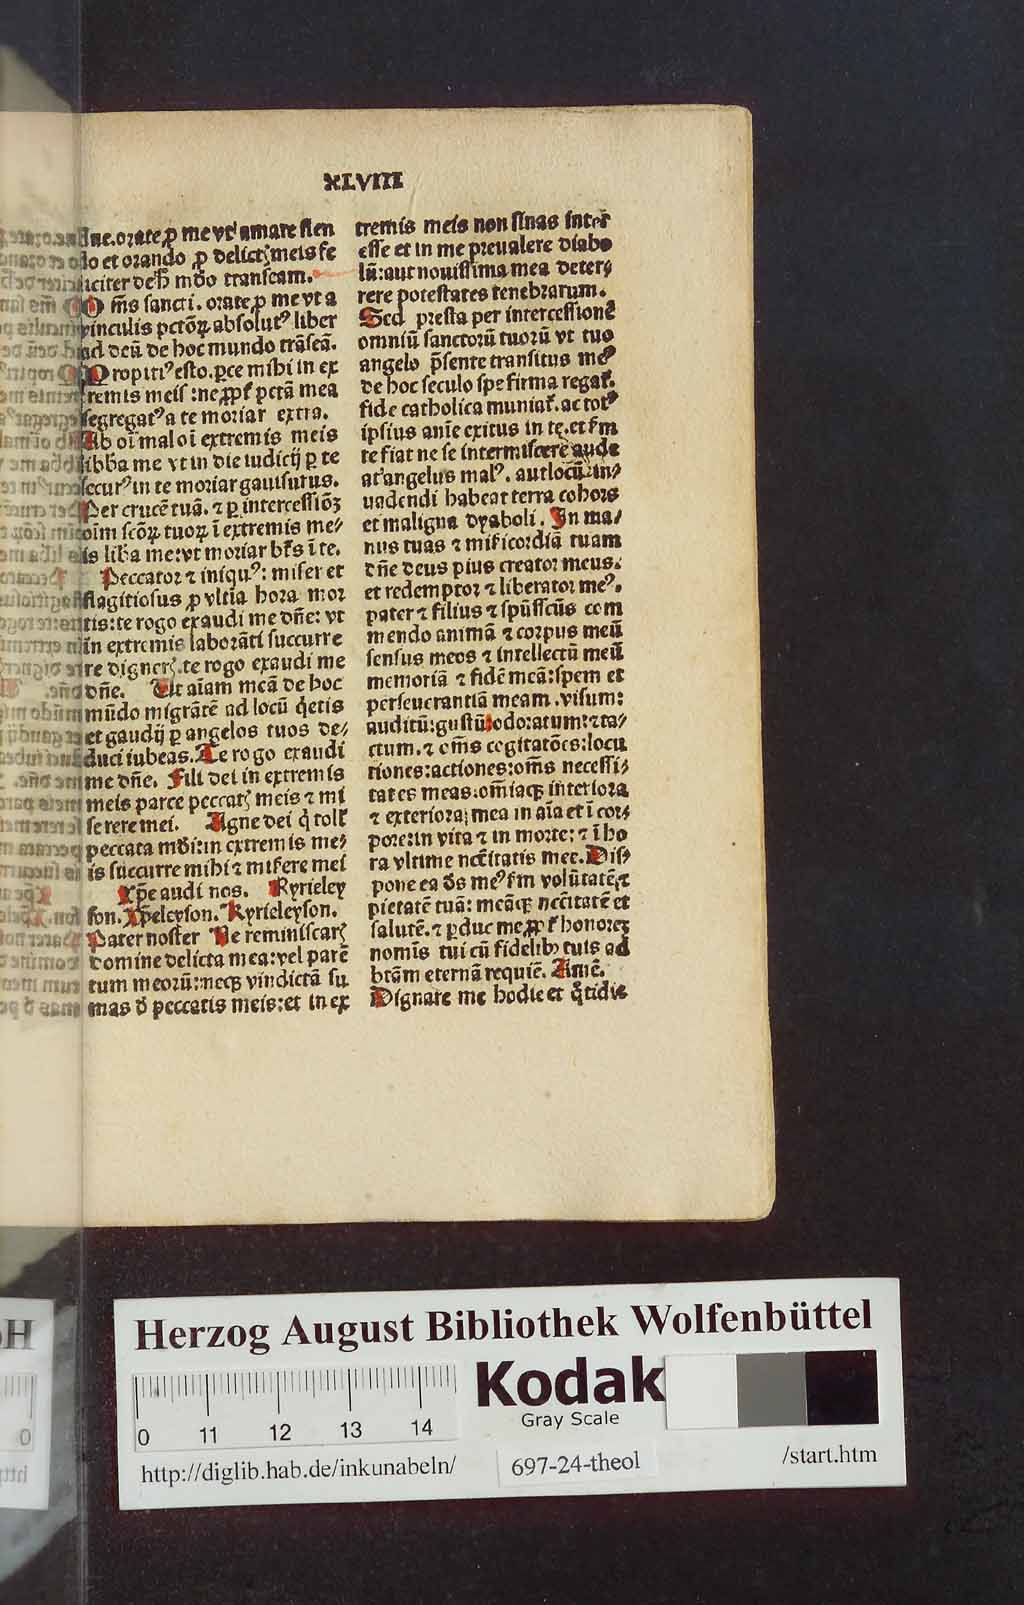 XLVIII
ne.orate ꝑ me vt amare flen
do et orando ꝓ delictꝭ meis fe
liciter de hͦ mūdo transeam.
Om̄s sancti. orate ꝑ me vt a
vinculis pctōꝝ absolutꝰ liber
ad deū de hoc mundo trāseā.
Propiciꝰ esto. ꝑce mihi in ex
tremis meis: ne ꝓpt̄ pctā mea
segregatꝰ a te moriar extra.
Ab oī malo ī extremis meis
libā me vt in die iudicij ꝑ te
securꝰ in te moriar gauisurus.
Per crucē tuā. ⁊ ꝑ intercessiōꝫ
oīm scōꝝ tuoꝝ ī extremis me⸗
is liba me: vt moriar bt̄s ī te.
Peccator ⁊ iniquꝰ: miser et
flagitiosus ꝓ vltīa hora mor
tis: te rogo exaudi me dn̄e: vt
in extremis laborāti succurre
re digneꝝ. te rogo exaudi me
dn̄e. Ut aīam meā de hoc
mūdo migrātē ad locū q̄etis
et gaudij ꝑ angelos tuos de⸗
duci iubeas. Te rogo exaudi
me dn̄e. Fili dei in extremis
meis parce peccatꝭ meis ⁊ mi
serere mei. Agne dei q̄ toll'
peccata mūdi: in extremis me⸗
is succurre mihi ⁊ miserere mei
Xp̄e audi nos. Kyrieley
son. Xp̄eleyson. Kyrieleyson.
Pater noster Ne reminiscarꝭ
domine delicta mea: vel parē
tum meorū: neqꝫ vindictā su
mas d̄ peccatis meis: et in ex
tremis meis non sinas inter
esse et in me preualere diabo
lū: aut nouissima mea deter⸗
rere potestates tenebrarum.
Sed presta per intercessionē
omniū sanctorū tuorū vt tuo
angelo p̄sente transitus meꝰ
de hoc seculo spe firma regat̄.
fide catholica muniat̄. ac totꝰ
ipsius anīe exitus in te. et s̄m
te fiat ne se intermiscere aude
at angelus malꝰ. aut locū in⸗
uadendi habeat terra cohors
et maligna dyaboli. In ma⸗
nus tuas ⁊ mīsericordiā tuam
dn̄e deus pius creator meus.
et redemptor ⁊ liberator meꝰ.
pater ⁊ filius ⁊ spūsscūs com
mendo animā ⁊ corpus meū
sensus meos ⁊ intellectū meū
memoriā ⁊ fidē meā: spem et
perseuerantiā meam. visum:
auditū: gustū: odoratum: ⁊ ta⸗
ctum. ⁊ om̄s cogitatōes: locu
tiones: actiones: om̄s necessi⸗
tates meas: om̄iaqꝫ interiora
⁊ exteriora mea in aīa et ī cor⸗
pore: in vita ⁊ in morte: ⁊ ī ho
ra vltime nccītatis mee. Dis⸗
pone ea d̄s meꝰ s̄m volūtatē ⁊
pietatē tuā: meāqꝫ nccītatē et
salutē. ⁊ ꝑduc me ꝓpt̄ honorē
nomīs tui cū fidelibꝰ tuis ad
btām eternā requiē. Amē.
Dignare me hodie et q̄tidie
Herzog August Bibliothek Wolfenbüttel
Kodak
Gray Scale
0 11 12 13 14
http://diglib.hab.de/inkunabeln/
697-24-theol
/start.htm